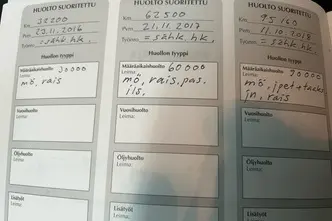 HUOLTO SUORITETTU
Km: 32200
Pvm: 29.11.2016
Työnro: =sähk. hk.
Huollon tyyppi
Määräaikaishuolto 30000
Leima:
mö, rais
Vuosihuolto
Leima:
Öljyhuolto
Leima:
Lisätyöt
HUOLTO SUORITETTU
Km: 62500
Pvm: 21.11.2017
Työnro: =sähk. hk.
Huollon tyyppi
Määräaikaishuolto 60000
Leima:
mö, rais, pas.
ils,
Vuosihuolto
Leima:
Öljyhuolto
Leima:
Lisätyöt
Leima:
HUOLTO SUORITETTU
Km: 95160
Pvm: 11.10.2018
Työnro: =sähk. hk.
Huollon tyyppi
Määräaikaishuolto 90000
Leima:
mö, jpet+taaks
jn, rais
Vuosihuolto
Leima:
Öljyhuolto
Leima:
Lisätyöt
Leima: